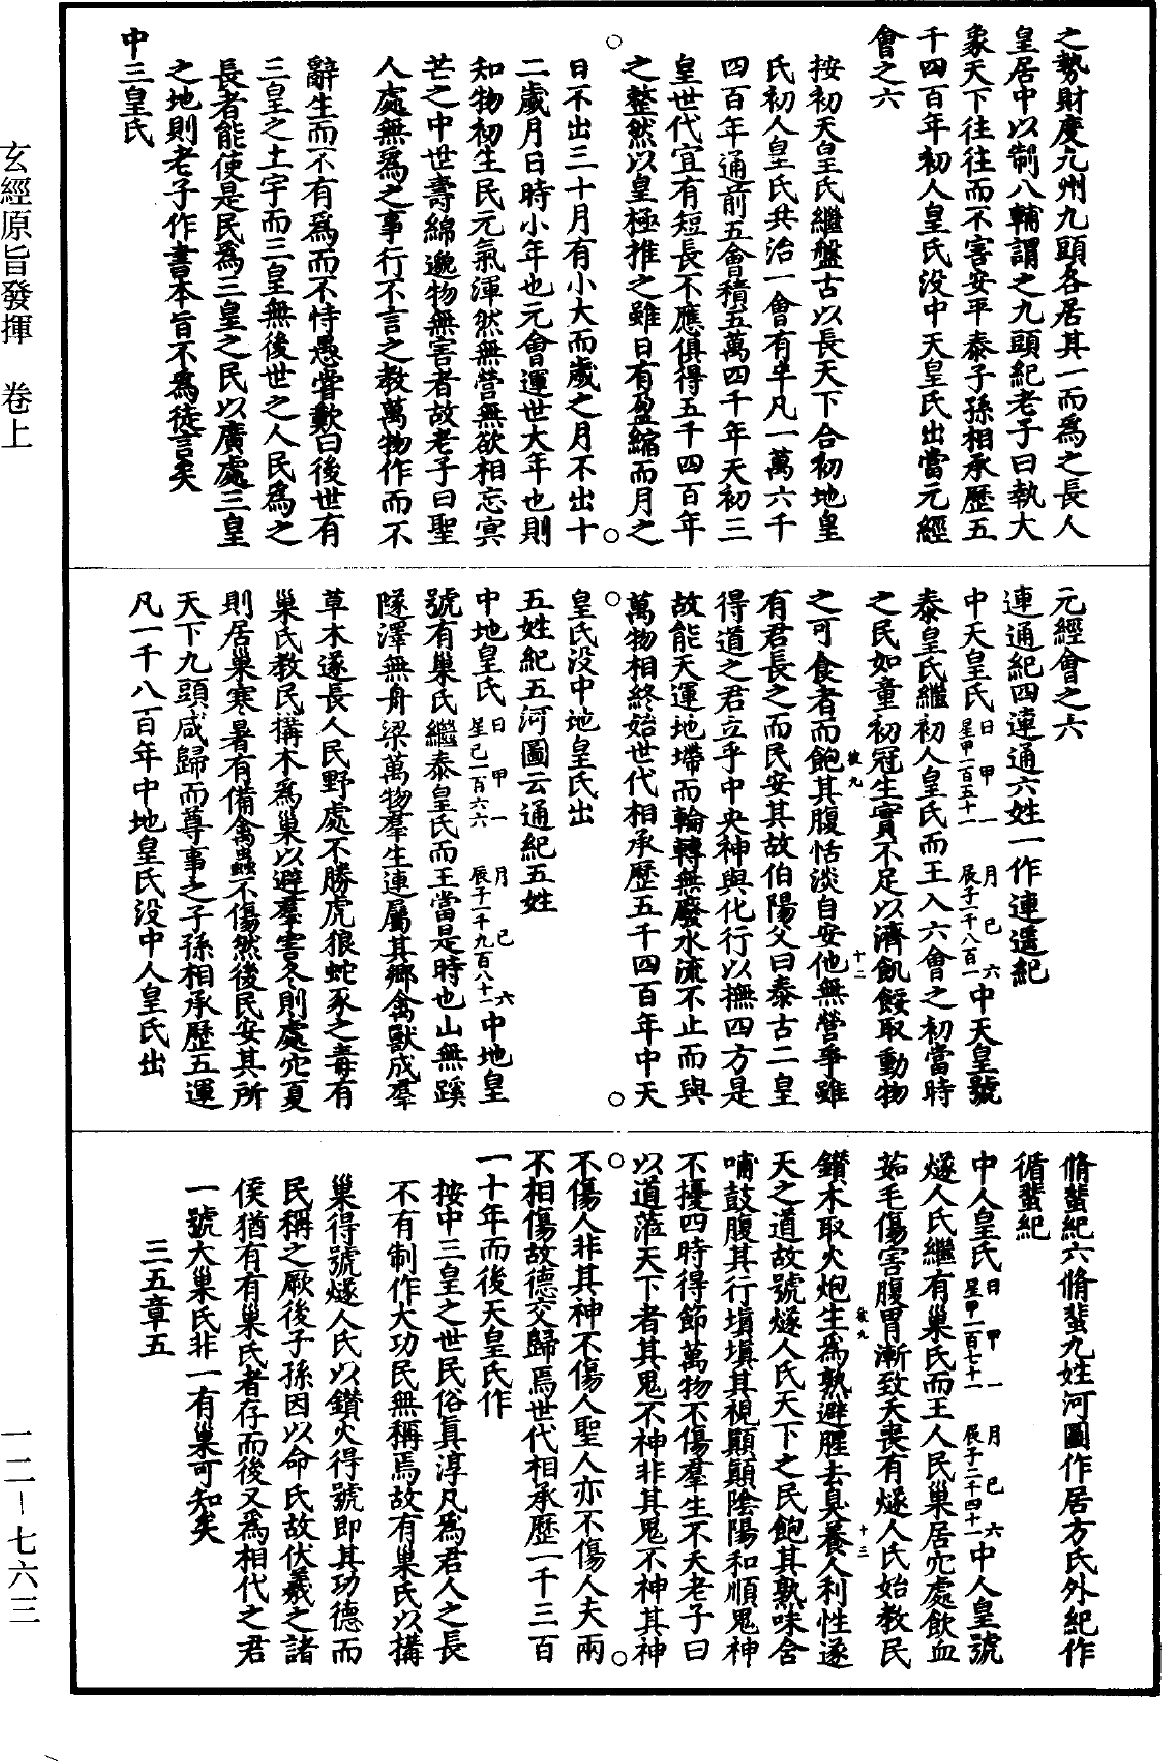 之勢財度九州九頭各居其一而為之長人
皇居中以制八輔謂之九頭紀老子曰執大
象天下往往而不害安平泰子孫相承歷五
千四百年初人皇氏没中天皇氏出當元經
會之六
按初天皇氏繼盤古以長天下合初地皇
氏初人皇氏共治一會有半凡一萬六千
四百年通前五會積五萬四千年天初三
皇世代宜有短長不應俱得五千四百年
之整然以皇極推之雖日有盈縮而月之
日不出三十月有小大而歲之月不出十
二歲月日時小年也元會運世大年也則
知物初生民元氣渾然無營無欲相忘㝠
芒之中世壽綿邈物無害者故老子曰聖
人處無為之事行不言之教萬物作而不
辭生而不有為而不恃愚嘗歎曰後世有
三皇之土宇而三皇無後世之人民為之
長者能使是民為三皇之民以廣處三皇
之地則老子作書本旨不為徒言矣
中三皇氏
元經會之六
連通紀四連通六姓一作連逼紀
中天皇氏 日甲一 月巳六 星甲一百五十一 辰子一千八百一 中天皇號
泰皇氏繼初人皇氏而王入六會之初當時
之民如童初冠生實不足以濟飢餒取動物
之可食者而飽其腹恬淡自安他無營爭雖
有君長之而民安其故伯陽父曰泰古二皇
得道之君立乎中央神與化行以撫四方是
故能天運地墆而輪轉無廢水流不止而與
萬物相終始世代相承歷五千四百年中天
皇氏没中地皇氏出
五姓紀五河圖云通紀五姓
中地皇氏 日甲一 月巳六 星己一百六六 辰子一千九百八十一 中地皇
號有巢氏繼泰皇氏而王當是時也山無蹊
隧澤無舟梁萬物羣生連屬其鄉禽獸成羣
草木遂長人民野處不勝虎狼蛇豕之毒有
巢氏教民搆木為巢以避羣害冬則處穴夏
則居巢寒暑有備禽蟲不傷然後民安其所
天下九頭咸歸而尊事之子孫相承歷五運
凡一千八百年中地皇氏没中人皇氏出
脩蜚紀六脩蜚九姓河圖作居方氏外紀作
循蜚紀
中人皇氏 日甲一 月巳六 星甲一百七十一 辰子二千四十一 中人皇號
燧人氏繼有巢氏而王人民巢居穴處飲血
茹毛傷害腹胃漸致夭喪有燧人氏始教民
鑽木取火炮生為熟避腥去臭養人利性遂
天之道故號燧人氏天下之民飽其熟味含
哺鼓腹其行塡塡其視顚顚陰陽和順鬼神
不擾四時得節萬物不傷羣生不夭老子曰
以道蒞天下者其鬼不神非其鬼不神其神
不傷人非其神不傷人聖人亦不傷人夫兩
不相傷故德交歸焉世代相承歷一千三百
一十年而後天皇氏作
按中三皇之世民俗真淳凡為君人之長
不有制作大功民無稱焉故有巢氏以搆
巢得號燧人氏以鑽火得號即其功德而
民稱之厥後子孫因以命氏故伏羲之諸
侯猶有有巢氏者存而後又為相代之君
一號大巢氏非一有巢可知矣
三五章五
玄經原旨發揮 卷上
一二－七六三